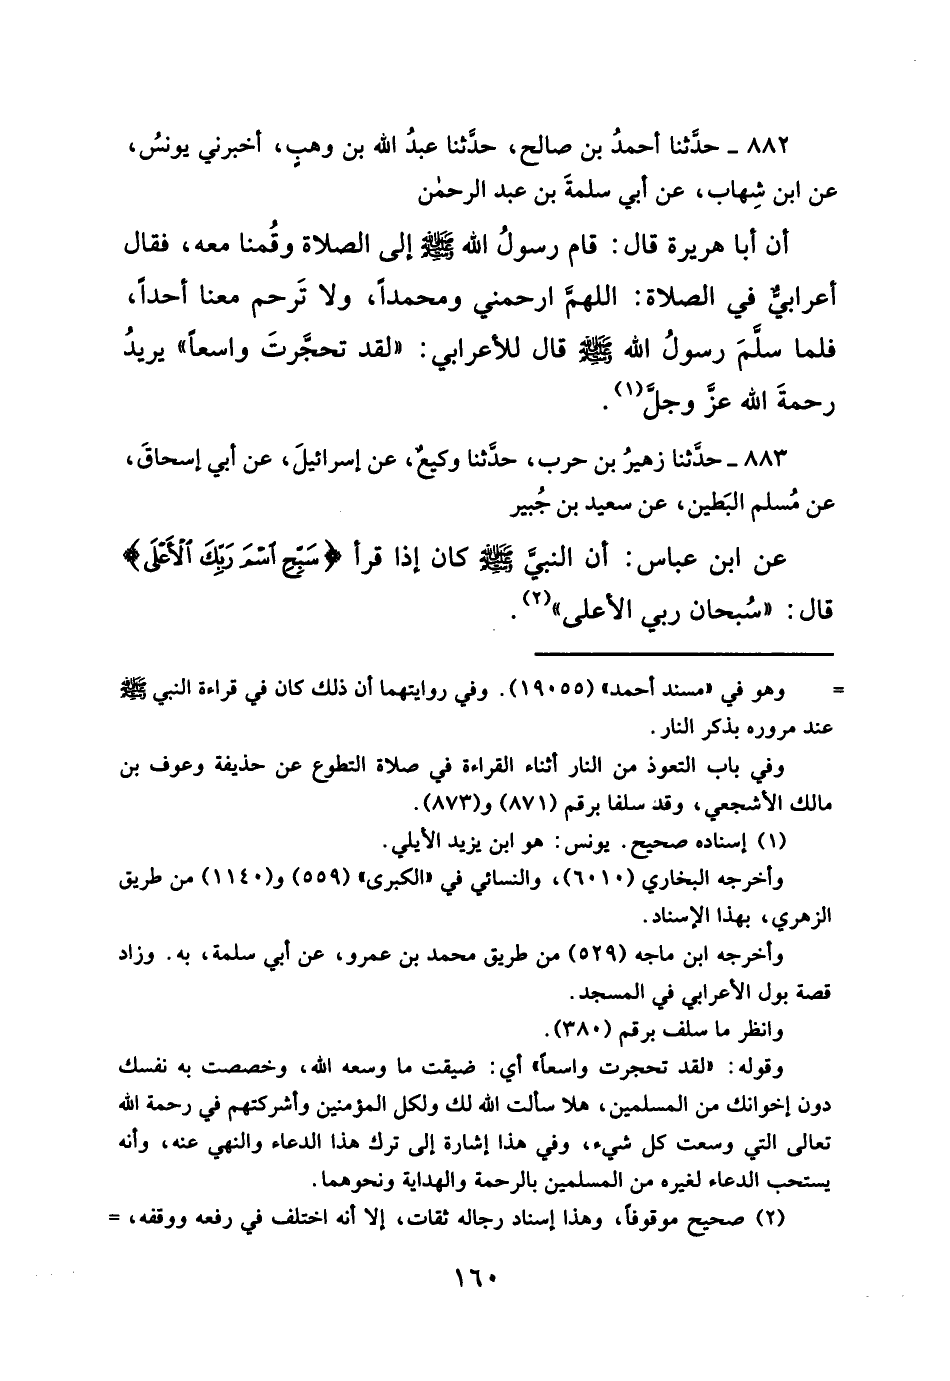 ٨٨٢ ـ حدَّثنا أحمدُ بن صالح، حدَّثنا عبدُ الله بن وهبٍ، أخبرني يونسُ،
عن ابن شِهاب، عن أبي سلمةَ بن عبد الرحمٰن
أن أبا هريرة قال: قام رسولُ الله ﷺ إلى الصلاة وقُمنا معه، فقال
أعرابيٌّ في الصلاة: اللهمَّ ارحمني ومحمداً، ولا تَرحم معنا أحداً،
فلما سلَّمَ رسولُ الله ﷺ قال للأعرابي: «لقد تحجَّرتَ واسعاً» يريدُ
رحمةَ الله عزَّ وجلَّ(١).
٨٨٣ ـ حدَّثنا زهيرُ بن حرب، حدَّثنا وكيعٌ، عن إسرائيلَ، عن أبي إسحاقَ،
عن مُسلم البَطين، عن سعيد بن جُبير
عن ابن عباس: أن النبيَّ ﷺ كان إذا قرأ ﴿سَبِّحِ ٱسْمَ رَبِّكَ ٱلْأَعْلَى﴾
قال: «سُبحان ربي الأعلى»(٢).
= وهو في «مسند أحمد» (١٩٠٥٥). وفي روايتهما أن ذلك كان في قراءة النبي ﷺ
عند مروره بذكر النار.
وفي باب التعوذ من النار أثناء القراءة في صلاة التطوع عن حذيفة وعوف بن
مالك الأشجعي، وقد سلفا برقم (٨٧١) و(٨٧٣).
(١) إسناده صحيح. يونس: هو ابن يزيد الأيلي.
وأخرجه البخاري (٦٠١٠)، والنسائي في «الكبرى» (٥٥٩) و(١١٤٠) من طريق
الزهري، بهذا الإسناد.
وأخرجه ابن ماجه (٥٢٩) من طريق محمد بن عمرو، عن أبي سلمة، به. وزاد
قصة بول الأعرابي في المسجد.
وانظر ما سلف برقم (٣٨٠).
وقوله: «لقد تحجرت واسعاً» أي: ضيقت ما وسعه الله، وخصصت به نفسك
دون إخوانك من المسلمين، هلا سألت الله لك ولكل المؤمنين وأشركتهم في رحمة الله
تعالى التي وسعت كل شيء، وفي هذا إشارة إلى ترك هذا الدعاء والنهي عنه، وأنه
يستحب الدعاء لغيره من المسلمين بالرحمة والهداية ونحوهما.
(٢) صحيح موقوفاً، وهذا إسناد رجاله ثقات، إلا أنه اختلف في رفعه ووقفه، =
١٦٠